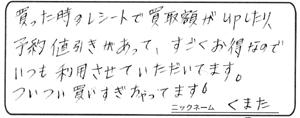 買った時のレシートで買取額がupしたり、
予約値引きがあって、すごくお得なので
いつも利用させていただいてます。
ついつい買いすぎちゃってます!
ニックネーム くまた